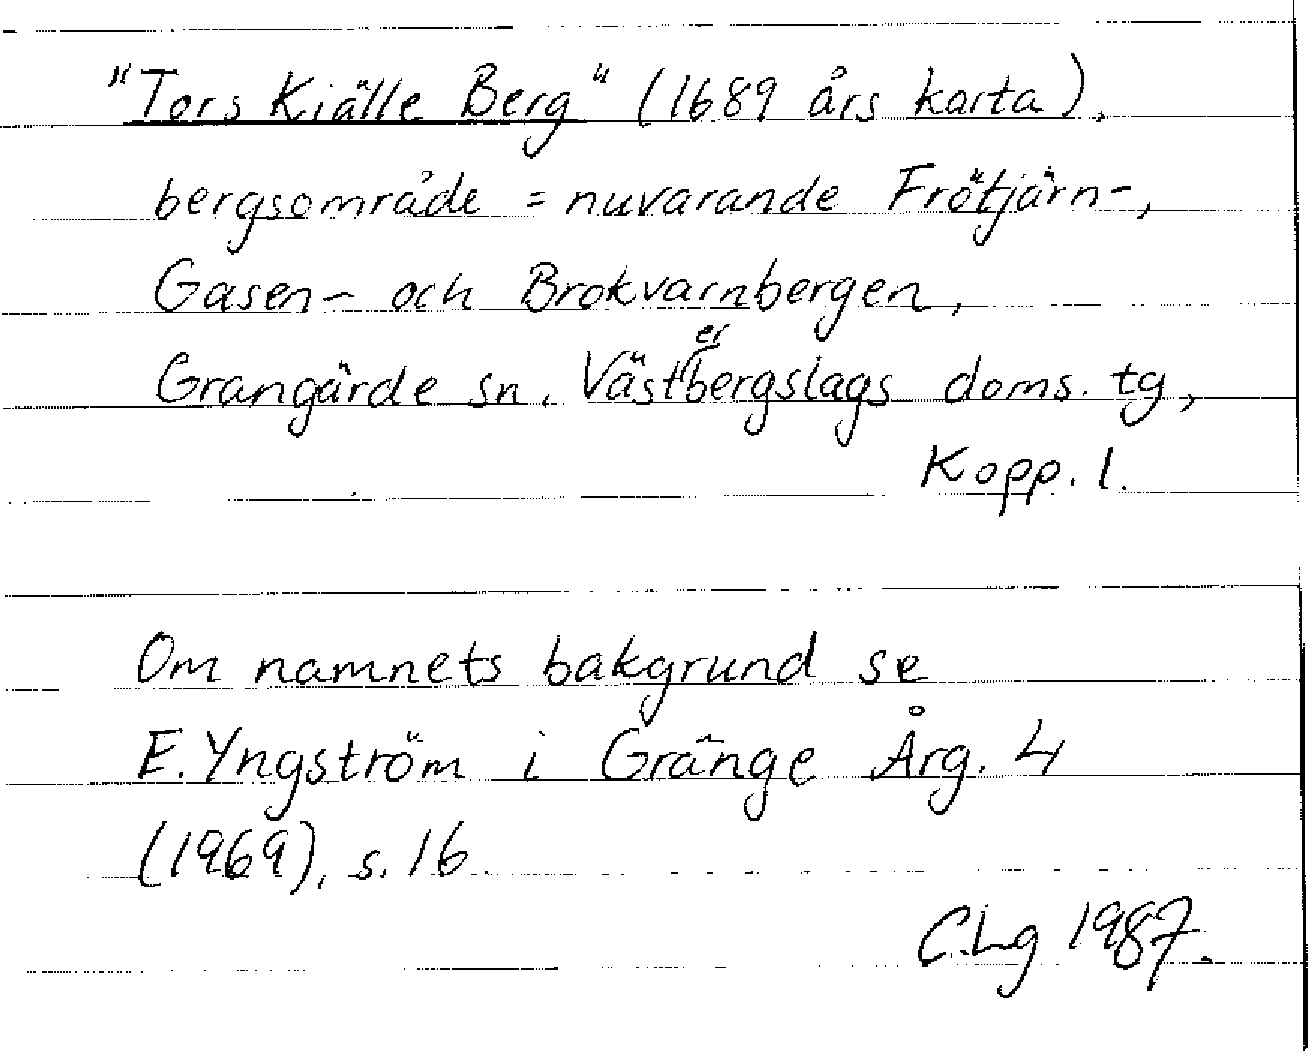 "Tors Kiälle Berg" (1689 års karta),
bergsområde = nuvarande Frötjärn-,
Gasen- och Brokvarnbergen,
Grangärde sn. Västerbergslags doms. tg,
Kopp. l.
Om namnets bakgrund se
E. Yngström i Gränge Årg. 4
(1969), s. 16
C.Lg 1987.